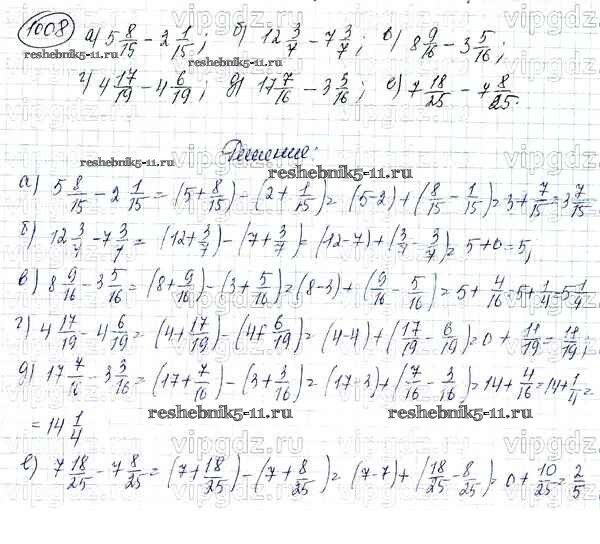 1008 а) 5 8/15 - 2 1/15; б) 12 3/7 - 7 3/7; в) 8 9/16 - 3 5/16;
г) 4 17/19 - 4 6/19; д) 17 7/16 - 3 3/16; е) 7 18/25 - 7 8/25.
Решение:
а) 5 8/15 - 2 1/15 = (5 + 8/15) - (2 + 1/15) = (5-2) + (8/15 - 1/15) = 3 + 7/15 = 3 7/15
б) 12 3/7 - 7 3/7 = (12 + 3/7) - (7 + 3/7) = (12-7) + (3/7 - 3/7) = 5 + 0 = 5,
в) 8 9/16 - 3 5/16 = (8 + 9/16) - (3 + 5/16) = (8-3) + (9/16 - 5/16) = 5 + 4/16 = 5 + 1/4 = 5 1/4
г) 4 17/19 - 4 6/19 = (4 + 17/19) - (4 + 6/19) = (4-4) + (17/19 - 6/19) = 0 + 11/19 = 11/19;
д) 17 7/16 - 3 3/16 = (17 + 7/16) - (3 + 3/16) = (17-3) + (7/16 - 3/16) = 14 + 4/16 = 14 + 1/4 =
= 14 1/4
е) 7 18/25 - 7 8/25 = (7 + 18/25) - (7 + 8/25) = (7-7) + (18/25 - 8/25) = 0 + 10/25 = 2/5
reshebnik5-11.ru
vipgdz.ru